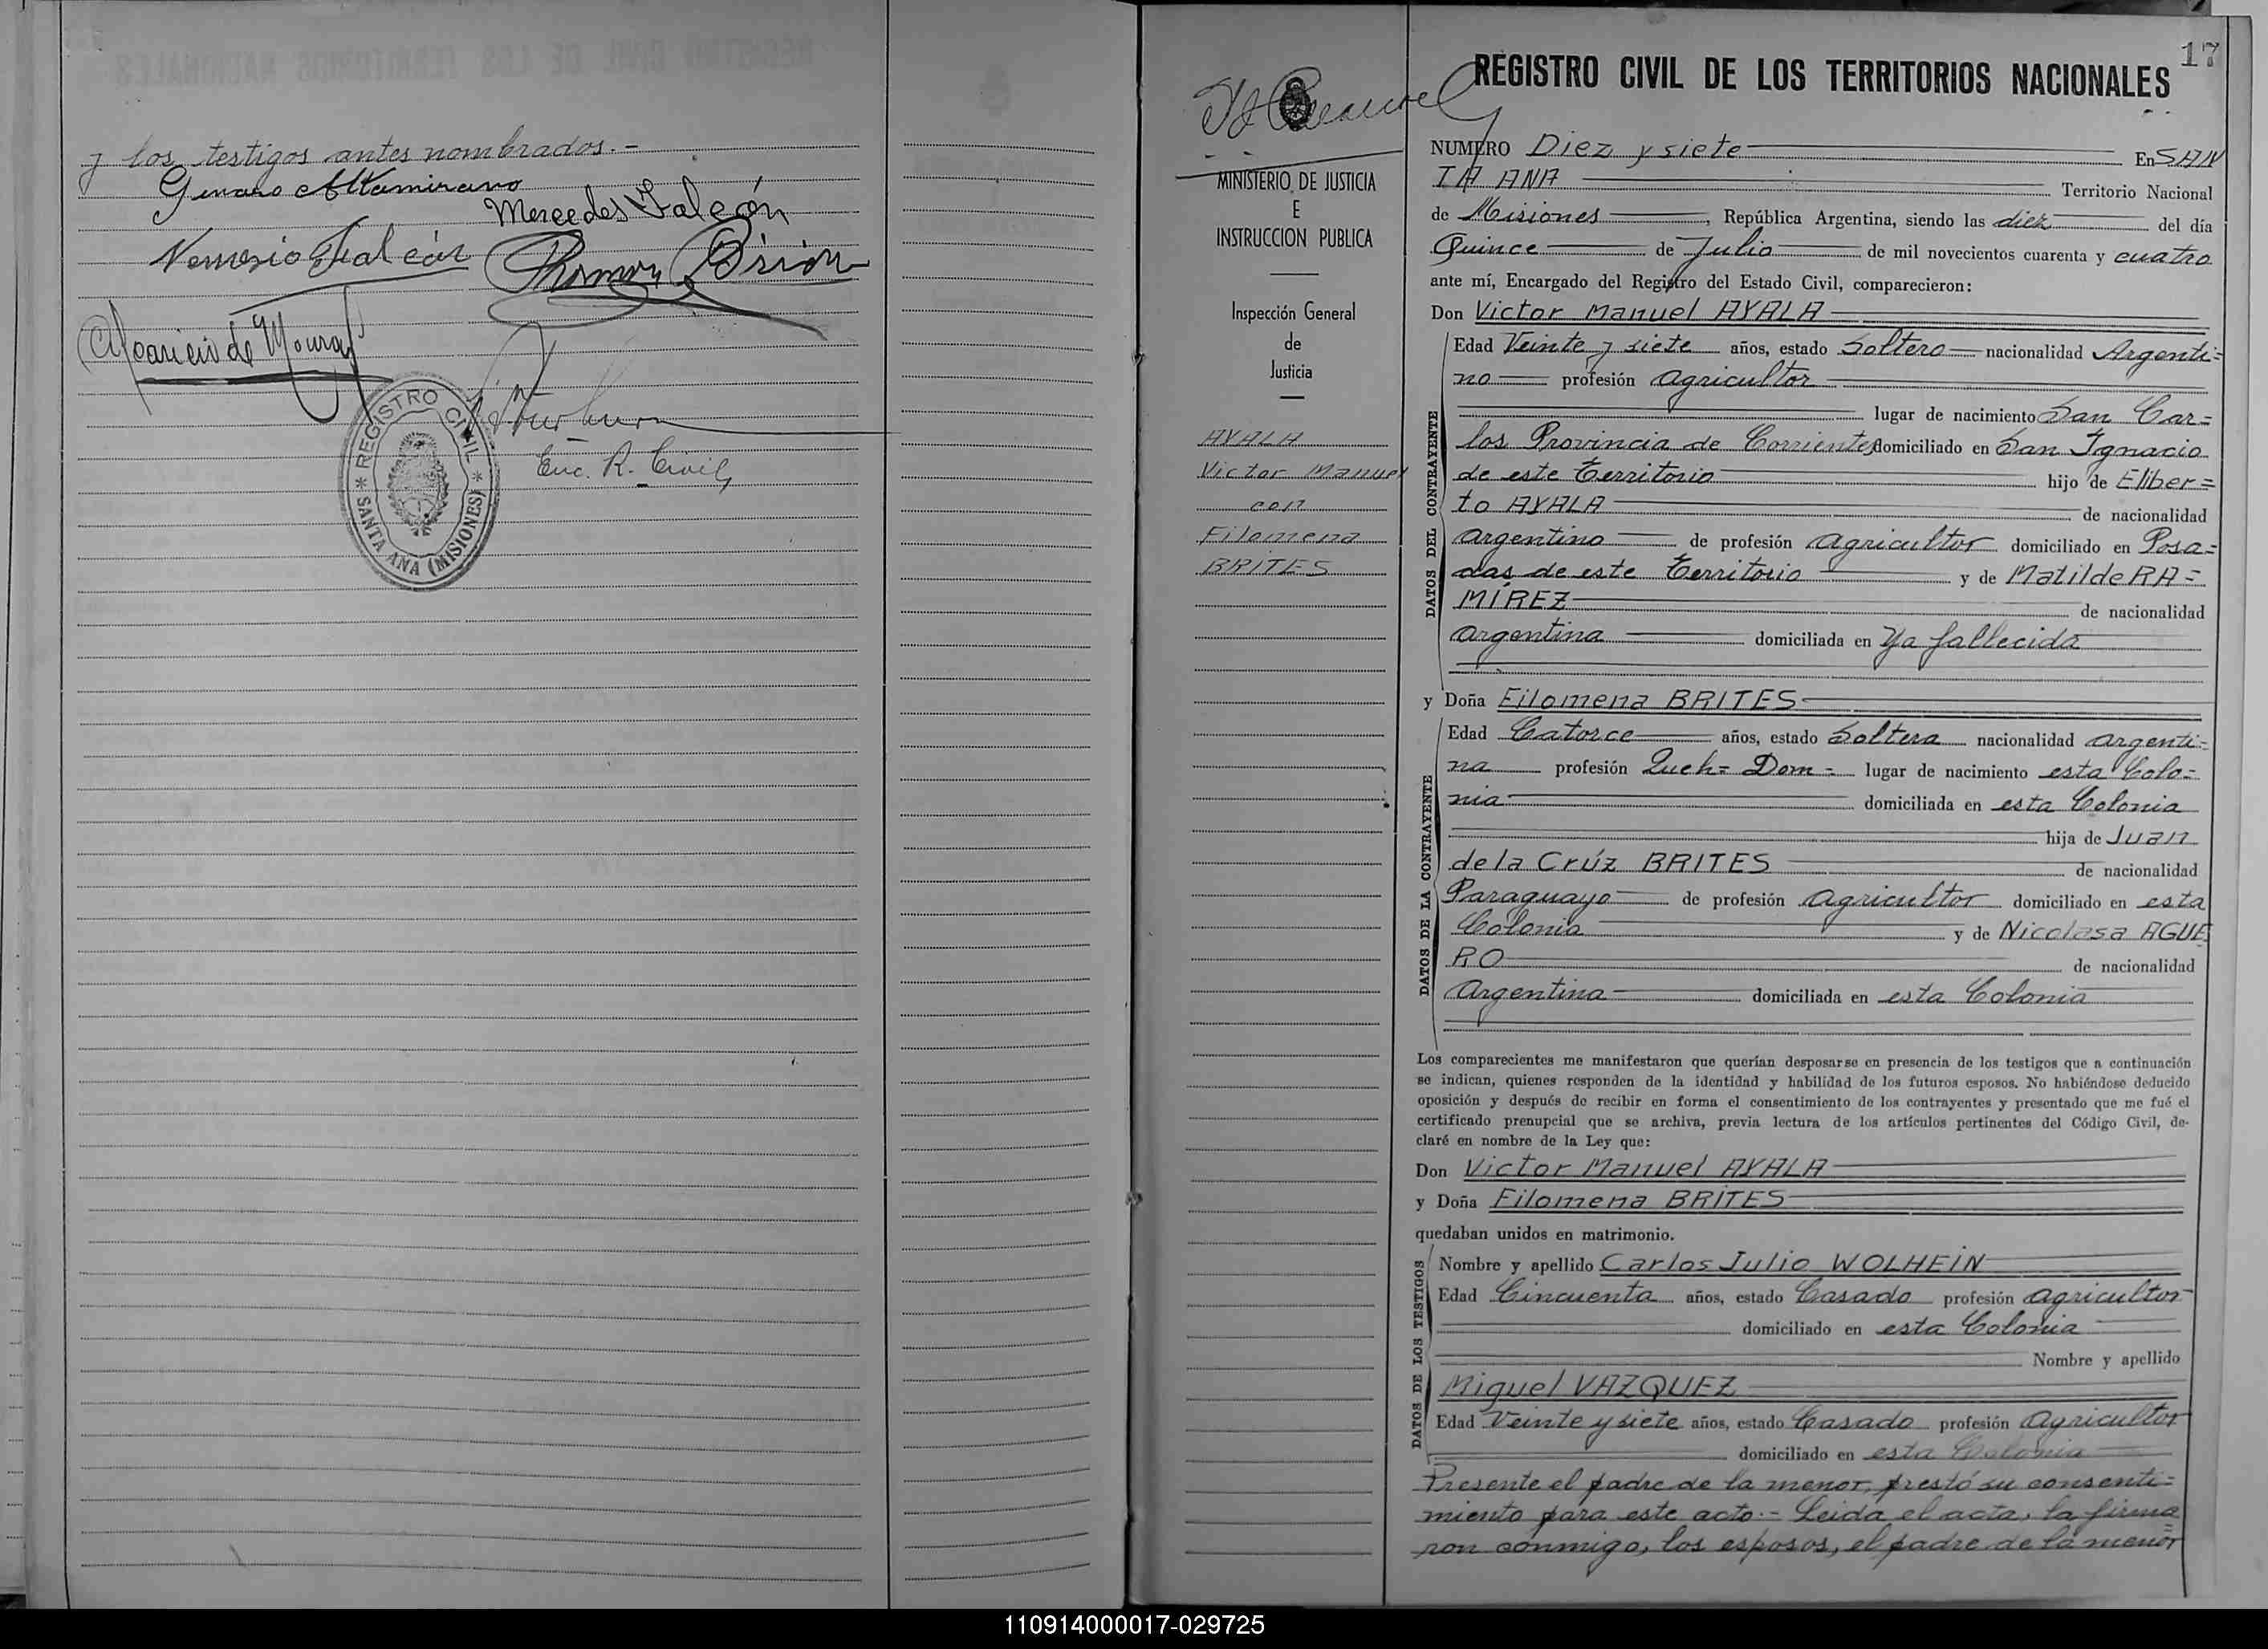 y los testigos antes nombrados.-
Genaro Altamirano
Mercedes Falcón
Nemesio Falcón
Ramon Brion
Aparicio de Moura
Enc. R. Civil
REGISTRO CIVIL
* SANTA ANA (MISIONES) *
17
REGISTRO CIVIL DE LOS TERRITORIOS NACIONALES
MINISTERIO DE JUSTICIA
E
INSTRUCCION PUBLICA
Inspección General
de
Justicia
AYALA
Victor Manuel
con
Filomena
BRITES
NUMERO Diez y siete En SAN
TA ANA Territorio Nacional
de Misiones, República Argentina, siendo las diez del día
Quince de Julio de mil novecientos cuarenta y cuatro
ante mí, Encargado del Registro del Estado Civil, comparecieron:
Don Victor Manuel AYALA
DATOS DEL CONTRAYENTE
Edad Veinte y siete años, estado Soltero nacionalidad Argenti=
no profesión agricultor
lugar de nacimiento San Car=
los Provincia de Corrientes domiciliado en San Ignacio
de este Territorio hijo de Eliber=
to AYALA de nacionalidad
argentino de profesión agricultor domiciliado en Posa=
das de este Territorio y de Matilde RA=
MIREZ de nacionalidad
argentina domiciliada en Ya fallecida
y Doña Filomena BRITES
DATOS DE LA CONTRAYENTE
Edad Catorce años, estado Soltera nacionalidad argenti=
na profesión Queh= Dom= lugar de nacimiento esta Colo=
nia domiciliada en esta Colonia
hija de Juan
de la Crúz BRITES de nacionalidad
Paraguayo de profesión agricultor domiciliado en esta
Colonia y de Nicolasa AGUE
RO de nacionalidad
Argentina domiciliada en esta Colonia
Los comparecientes me manifestaron que querían desposarse en presencia de los testigos que a continuación
se indican, quienes responden de la identidad y habilidad de los futuros esposos. No habiéndose deducido
oposición y después de recibir en forma el consentimiento de los contrayentes y presentado que me fué el
certificado prenupcial que se archiva, previa lectura de los artículos pertinentes del Código Civil, de-
claré en nombre de la Ley que:
Don Victor Manuel AYALA
y Doña Filomena BRITES
quedaban unidos en matrimonio.
DATOS DE LOS TESTIGOS
Nombre y apellido Carlos Julio WOLHEIN
Edad Cincuenta años, estado Casado profesión agricultor
domiciliado en esta Colonia
Nombre y apellido
Miguel VAZQUEZ
Edad Veinte y siete años, estado Casado profesión Agricultor
domiciliado en esta Colonia
Presente el padre de la menor, prestó su consenti=
miento para este acto.- Leida el acta, la firma
ron conmigo, los esposos, el padre de la menor
110914000017-029725